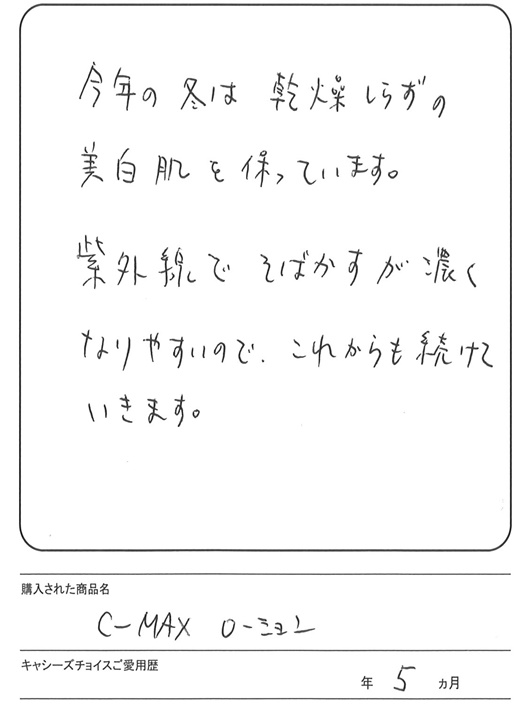 今年の 冬は 乾燥しらずの
美白肌を保っています。
紫外線で そばかすが濃く
なりやすいので、これからも続けて
いきます。
購入された商品名
C-MAX ローション
キャシーズチョイスご愛用歴
年 5 ヵ月